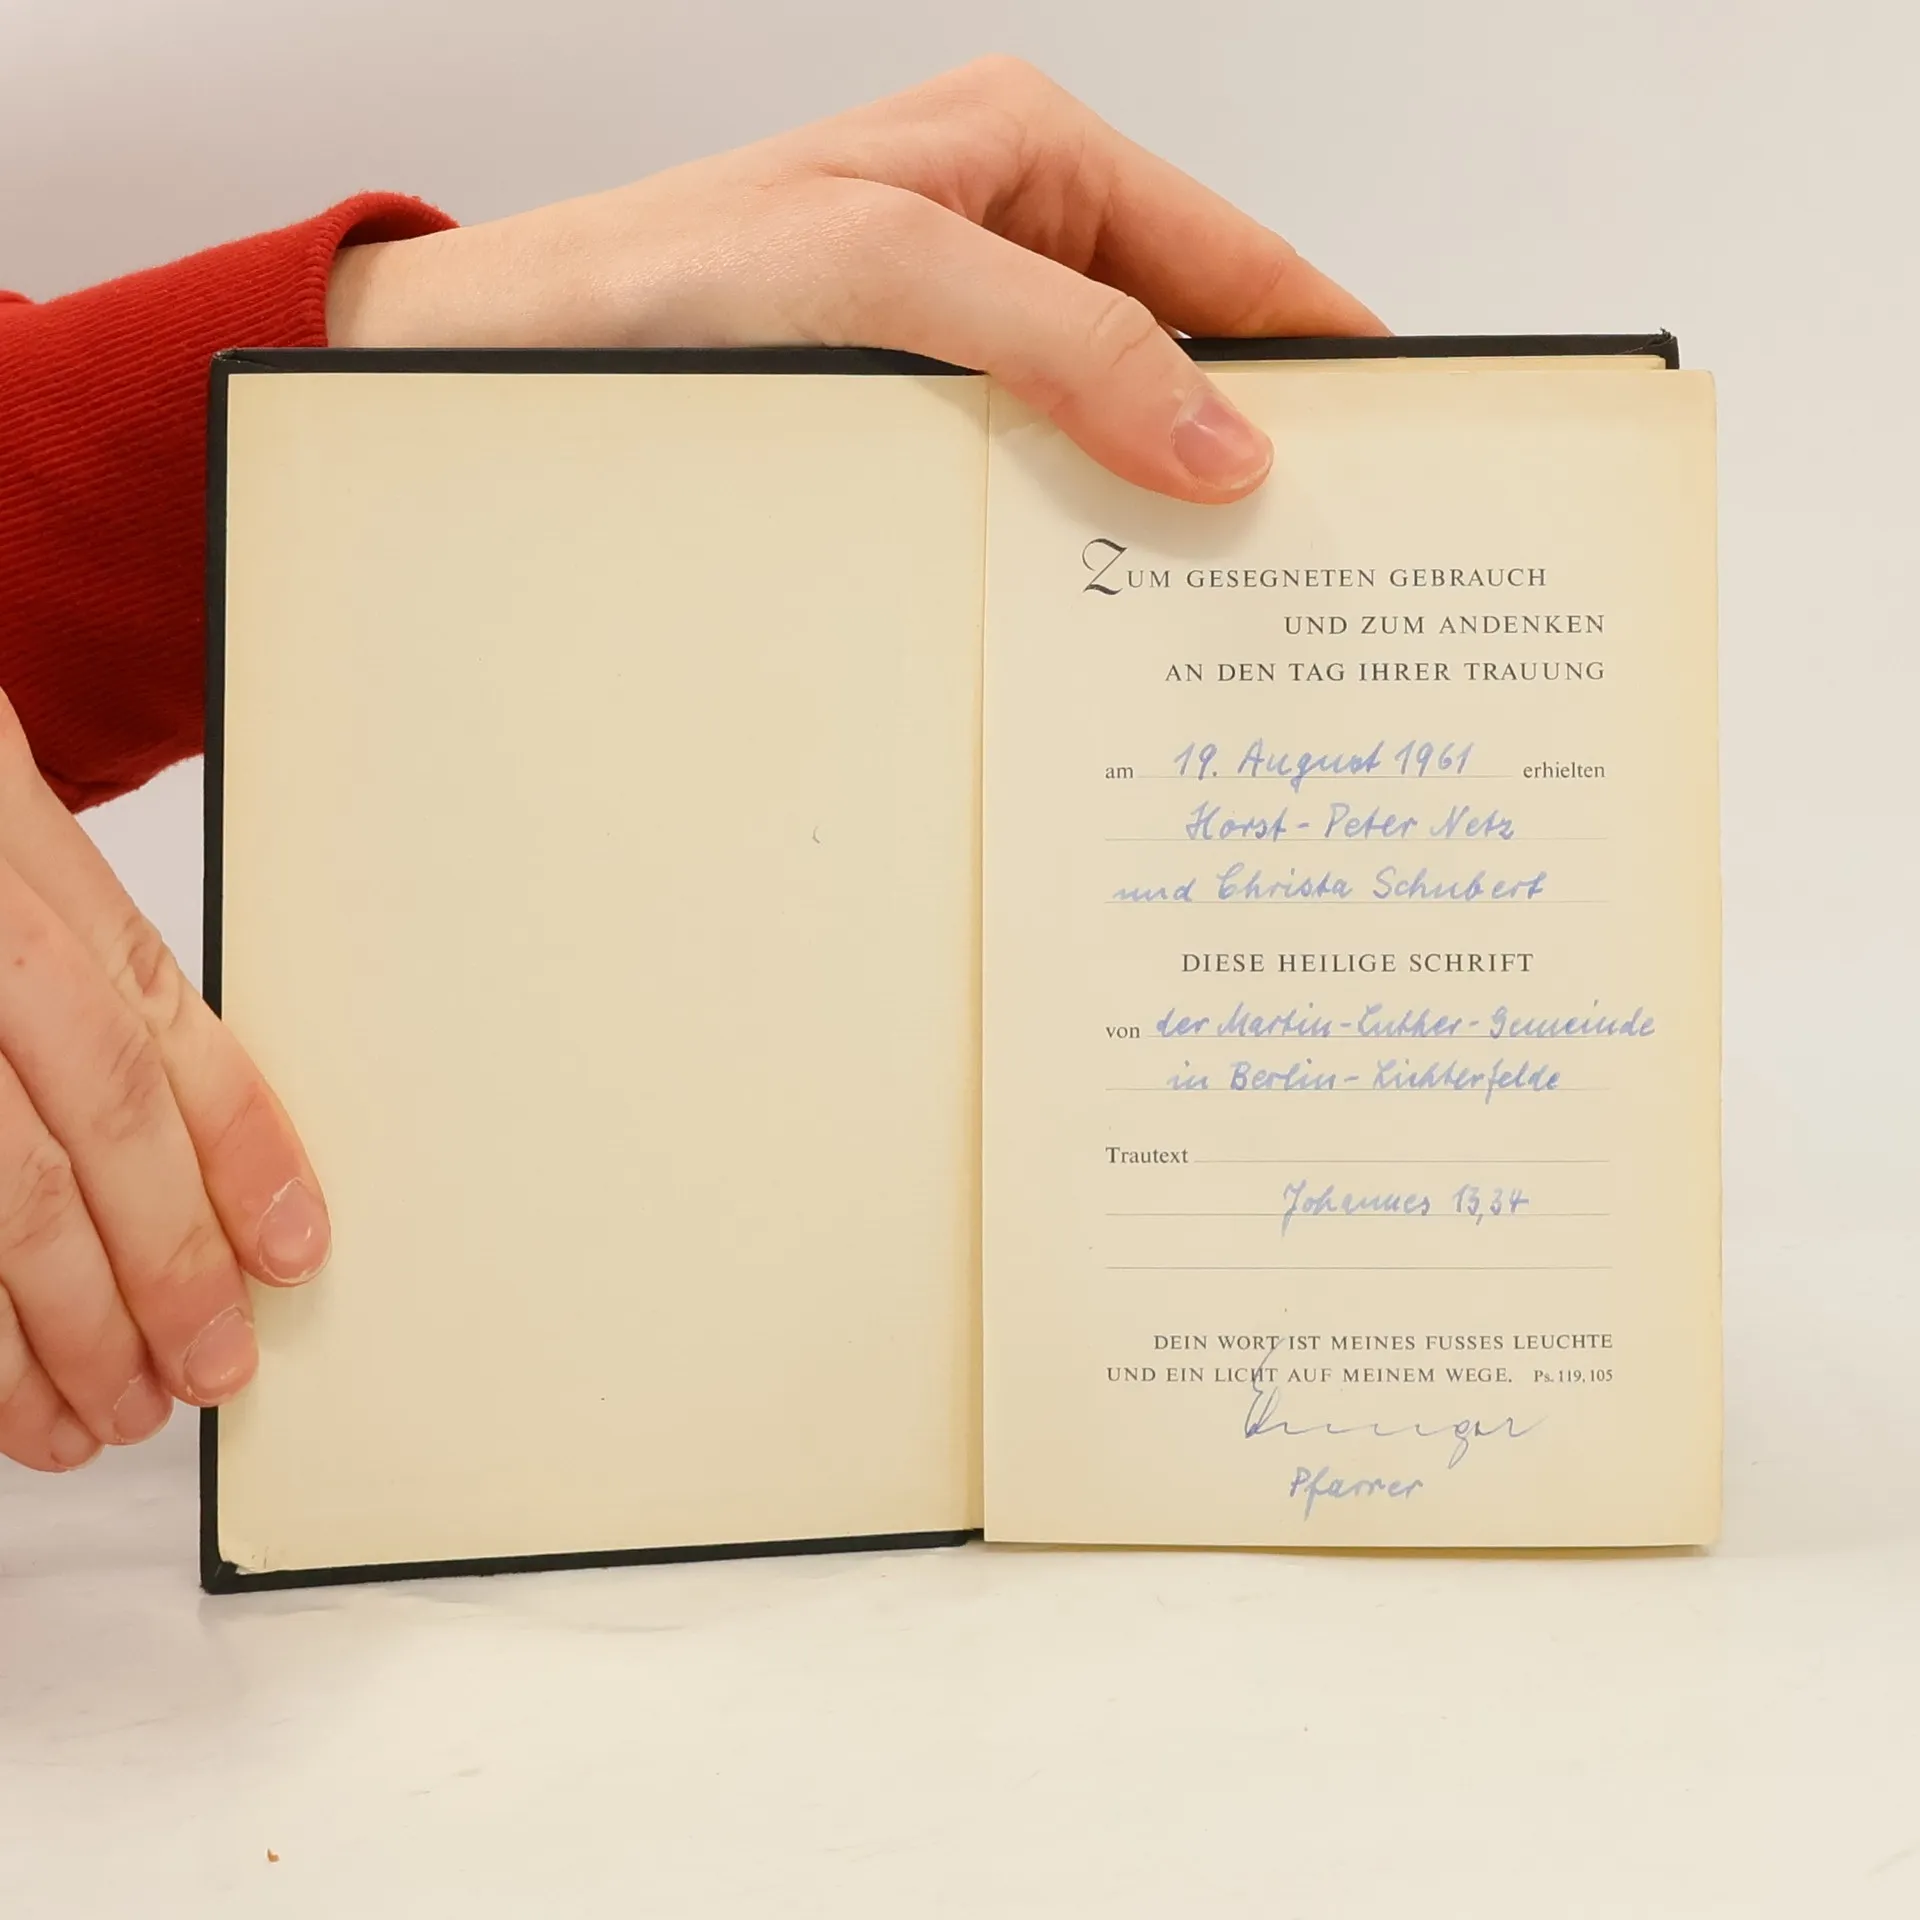 ZUM GESEGNETEN GEBRAUCH
UND ZUM ANDENKEN
AN DEN TAG IHRER TRAUUNG
am 19. August 1961 erhielten
Horst-Peter Netz
und Christa Schubert
DIESE HEILIGE SCHRIFT
von der Martin-Luther-Gemeinde
in Berlin-Lichterfelde
Trautext
Johannes 13,34
DEIN WORT IST MEINES FUSSES LEUCHTE
UND EIN LICHT AUF MEINEM WEGE. Ps. 119, 105
Pfarrer